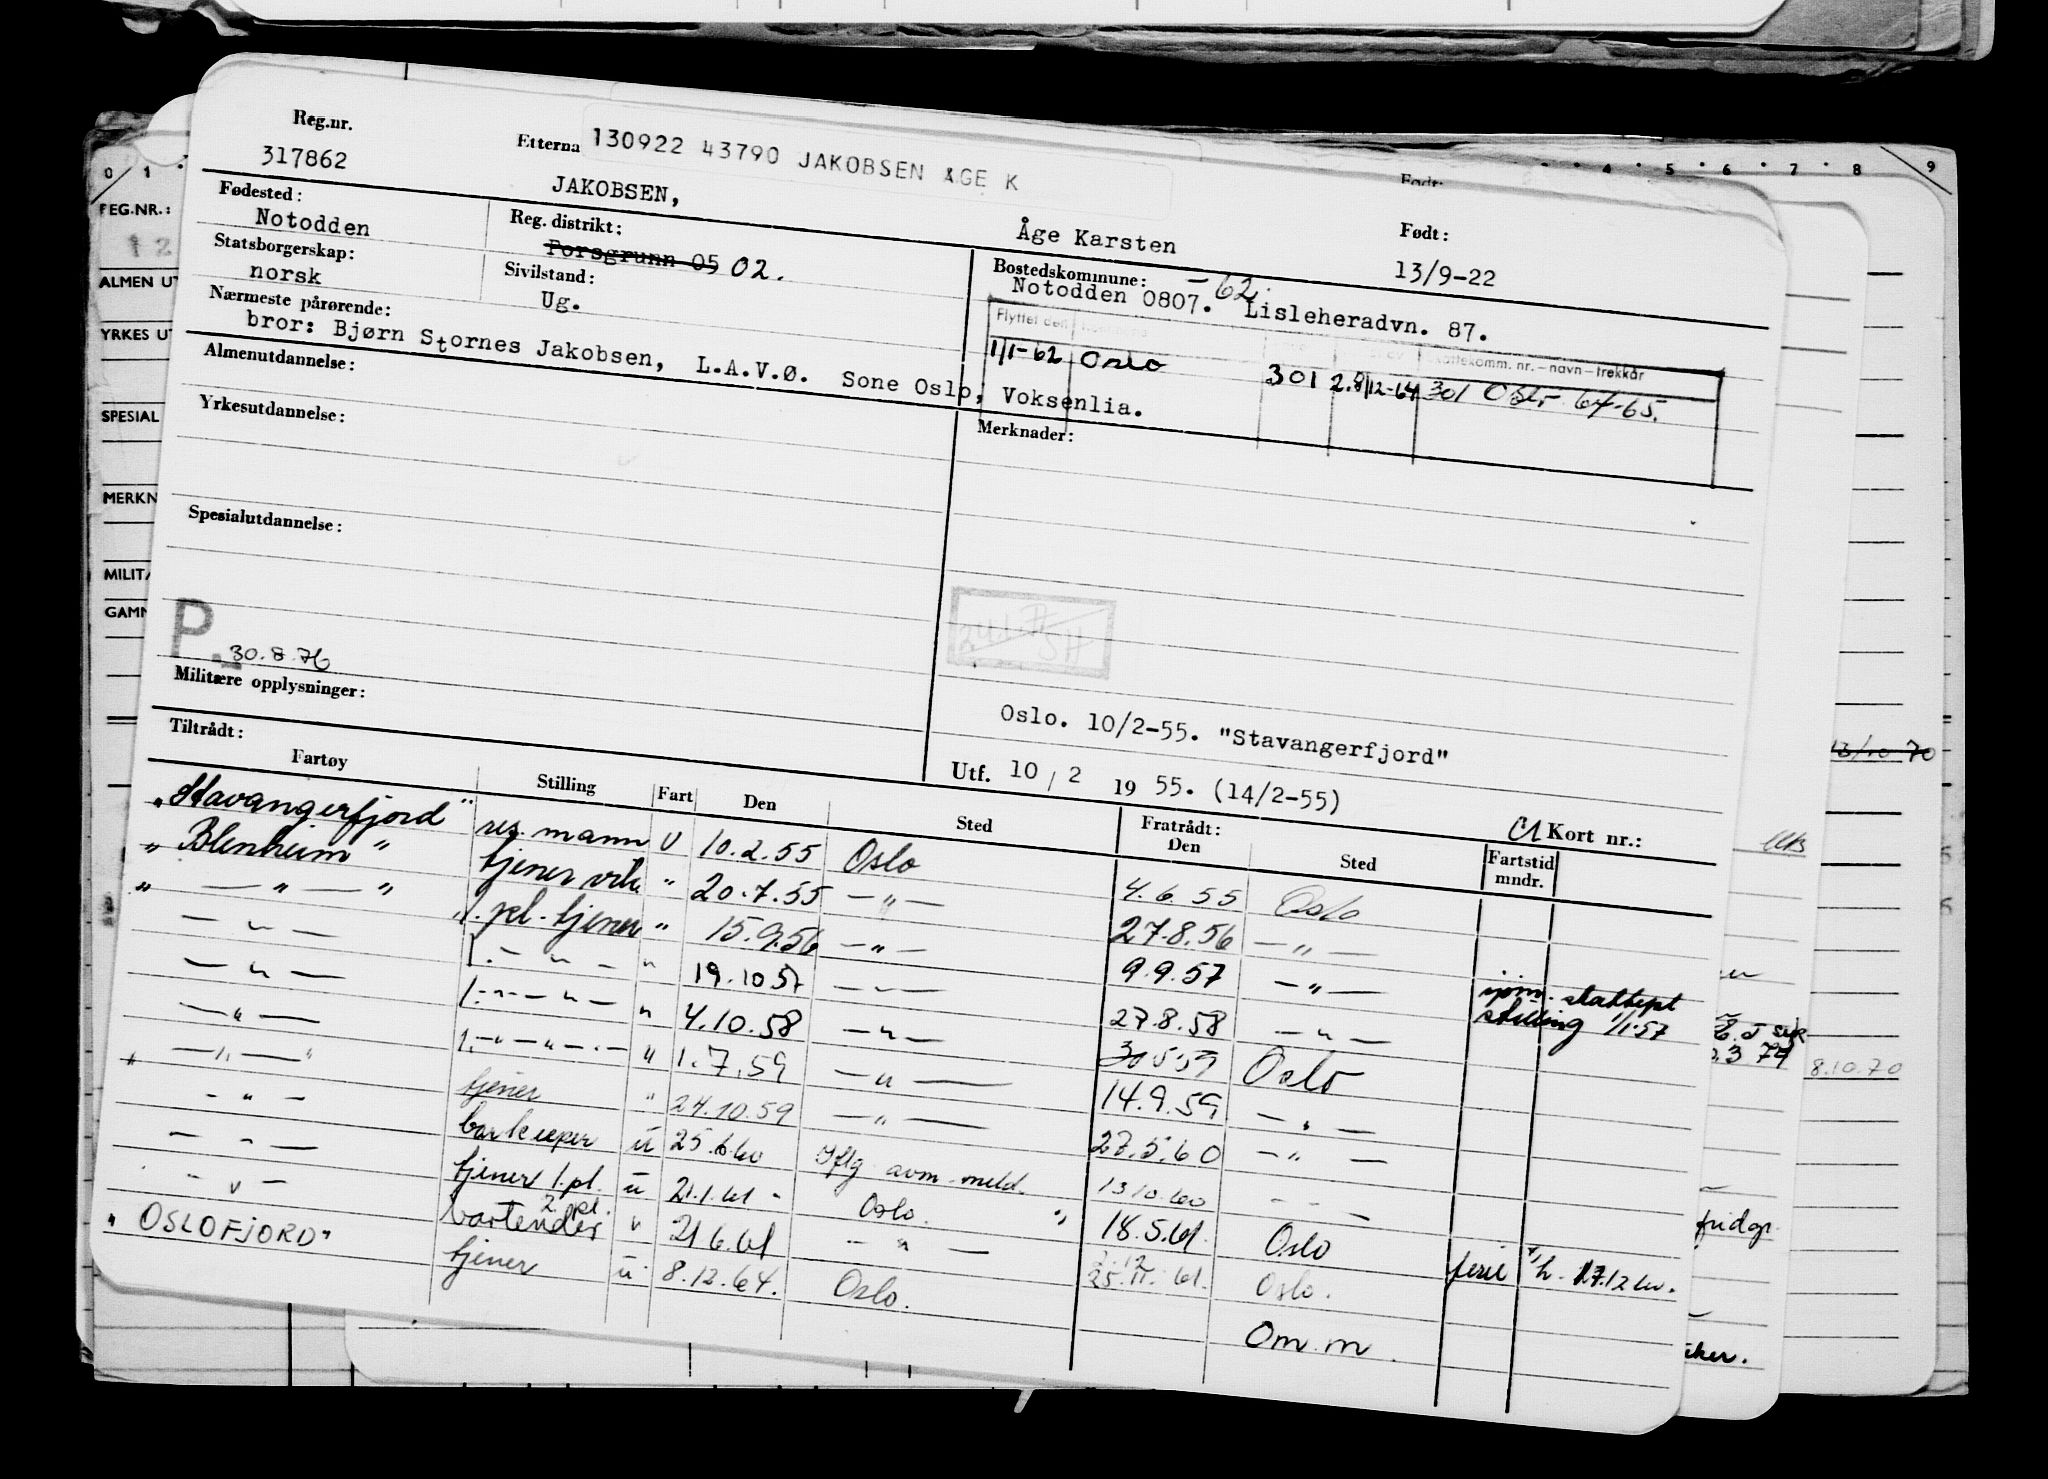 Reg.nr. 317862
Etterna 130922 43790 JAKOBSEN ÅGE K
JAKOBSEN, Åge Karsten
Født:
Født: 13/9-22
Fødested: Notodden
Reg. distrikt: Porsgrunn 05 02.
Bostedskommune: -62.
Notodden 0807. Lisleheradvn. 87.
Statsborgerskap: norsk
Sivilstand: Ug.
Flyttet den
skattekomm. nr.-navn-trekkår
1/1-62 Oslo 301 2.8/12-64 301 Oslo 64-65.
Nærmeste pårørende:
bror: Bjørn Stornes Jakobsen, L.A.V.Ø. Sone Oslo, Voksenlia.
Almenutdannelse:
Merknader:
Yrkesutdannelse:
Spesialutdannelse:
P.
30.8.76
Militære opplysninger:
Oslo. 10/2-55. "Stavangerfjord"
Utf. 10/2 1955. (14/2-55)
C1 Kort nr.:
Tiltrådt:
Fartøy Stilling Fart Den Sted Fratrådt: Den Sted Fartstid mndr.
"Stavangerfjord" res. mann U 10.2.55 Oslo 4.6.55 Oslo
"Blenheim" tjener " 20.7.55 —"— 27.8.56 —"—
" — " — " 1. pl. tjener " 15.9.56 —"— 9.9.57 —"—
— " — 1. — " — " 19.10 57 — " — 27.8.58 — " — stilling 1/1-57
— " — 1. — " — " 4.10.58 — " — 30 5 59 Oslo
— " — 1. — " — " — " 1.7.59 — " — 14.9.59 — " —
" — " — " tjener " 24.10.59 — " — 27.5.60 — " —
— " — barkeeper u 25.6.60 Iflg. avm. meld. 13 10.60 — —
— " — tjener 1.pl. u 21.1.61 Oslo. " 18.5.61. Oslo
— " — 2. pl. bartender " 21 6.61 — " — 2.12 25.11.61. Oslo. ferie 17.12 60.
"OSLOFJORD" tjener u 8.12.64. Oslo. Om. m.
0 1 4 5 6 7 8 9
ALMEN UT
YRKES UT
SPESIAL
MERKN
MILITÆ
GAMM
13/10 70
8.10.70